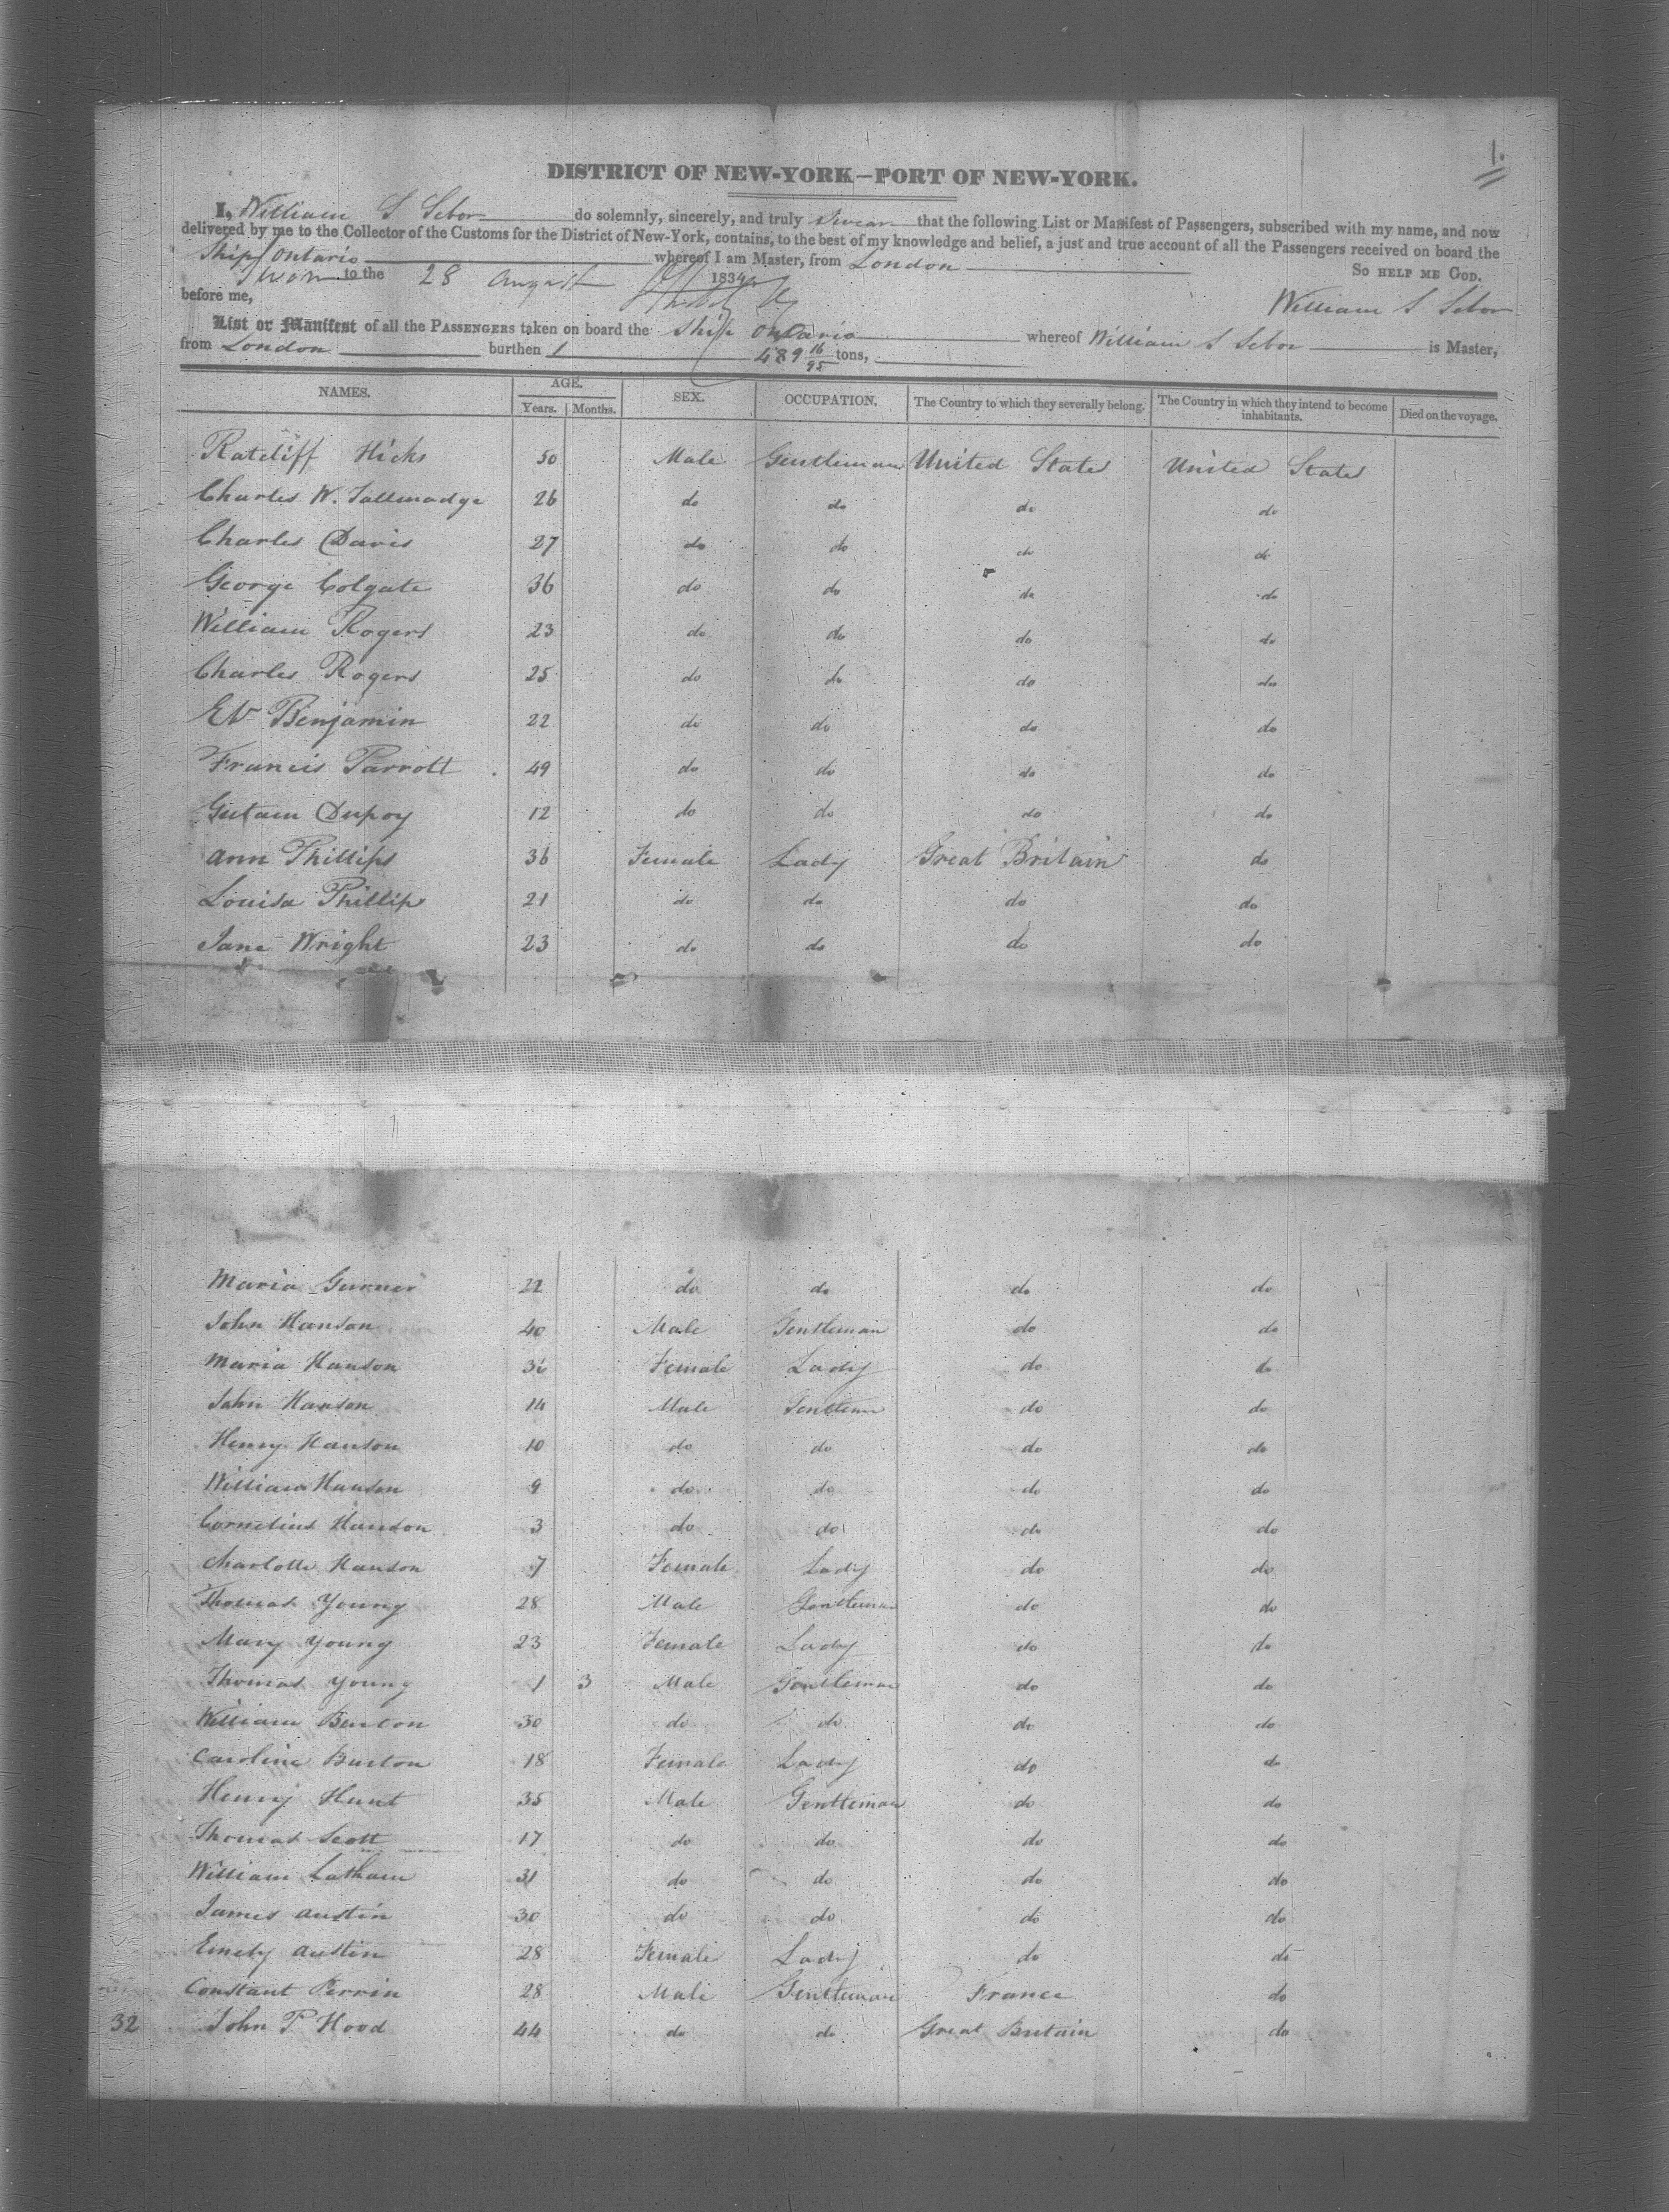 1.
DISTRICT OF NEW-YORK—PORT OF NEW-YORK.
I, William S Sebor do solemnly, sincerely, and truly swear that the following List or Manifest of Passengers, subscribed with my name, and now
delivered by me to the Collector of the Customs for the District of New-York, contains, to the best of my knowledge and belief, a just and true account of all the Passengers received on board the
Ship Ontario whereof I am Master, from London
So HELP ME GOD.
Sworn to the 28 August 1834
before me,
William S Sebor
List or Manifest of all the PASSENGERS taken on board the Ship Ontario whereof William S Sebor is Master,
from London burthen 489 16/95 tons,
NAMES. AGE. SEX. OCCUPATION. The Country to which they severally belong. The Country in which they intend to become inhabitants. Died on the voyage.
Years. Months.
Ratcliff Hicks 50 Male Gentleman United States United States
Charles W. Tallmadge 26 do do do do
Charles Davis 27 do do do do
George Colgate 36 do do do do
William Rogers 23 do do do do
Charles Rogers 25 do do do do
Benjamin 22 do do do do
Francis Parrott 49 do do do do
Dupoy 12 do do do do
Ann Phillips 36 Female Lady Great Britain do
Louisa Phillips 21 do do do do
Jane Wright 23 do do do do
Maria Gurner 22 do do do do
John Hanson 40 Male Gentleman do do
Maria Hanson Female Lady do do
John Hanson 14 Male Gentleman do do
Henry Hanson 10 do do do do
William Hanson 9 do do do do
Cornelius Hanson 3 do do do do
Charlotte Hanson 7 Female Lady do do
Thomas Young 28 Male Gentleman do do
Mary Young 23 Female Lady do do
Thomas Young 1 3 Male Gentleman do do
William Burton 30 do do do do
Caroline Burton 18 Female Lady do do
Henry Hunt 35 Male Gentleman do do
Thomas Scott 17 do do do do
William Latham 31 do do do do
James Austin 30 do do do do
Emely Austin 28 Female Lady do do
Constant Perrin 28 Male Gentleman France do
32 John P Hood 44 do do Great Britain do